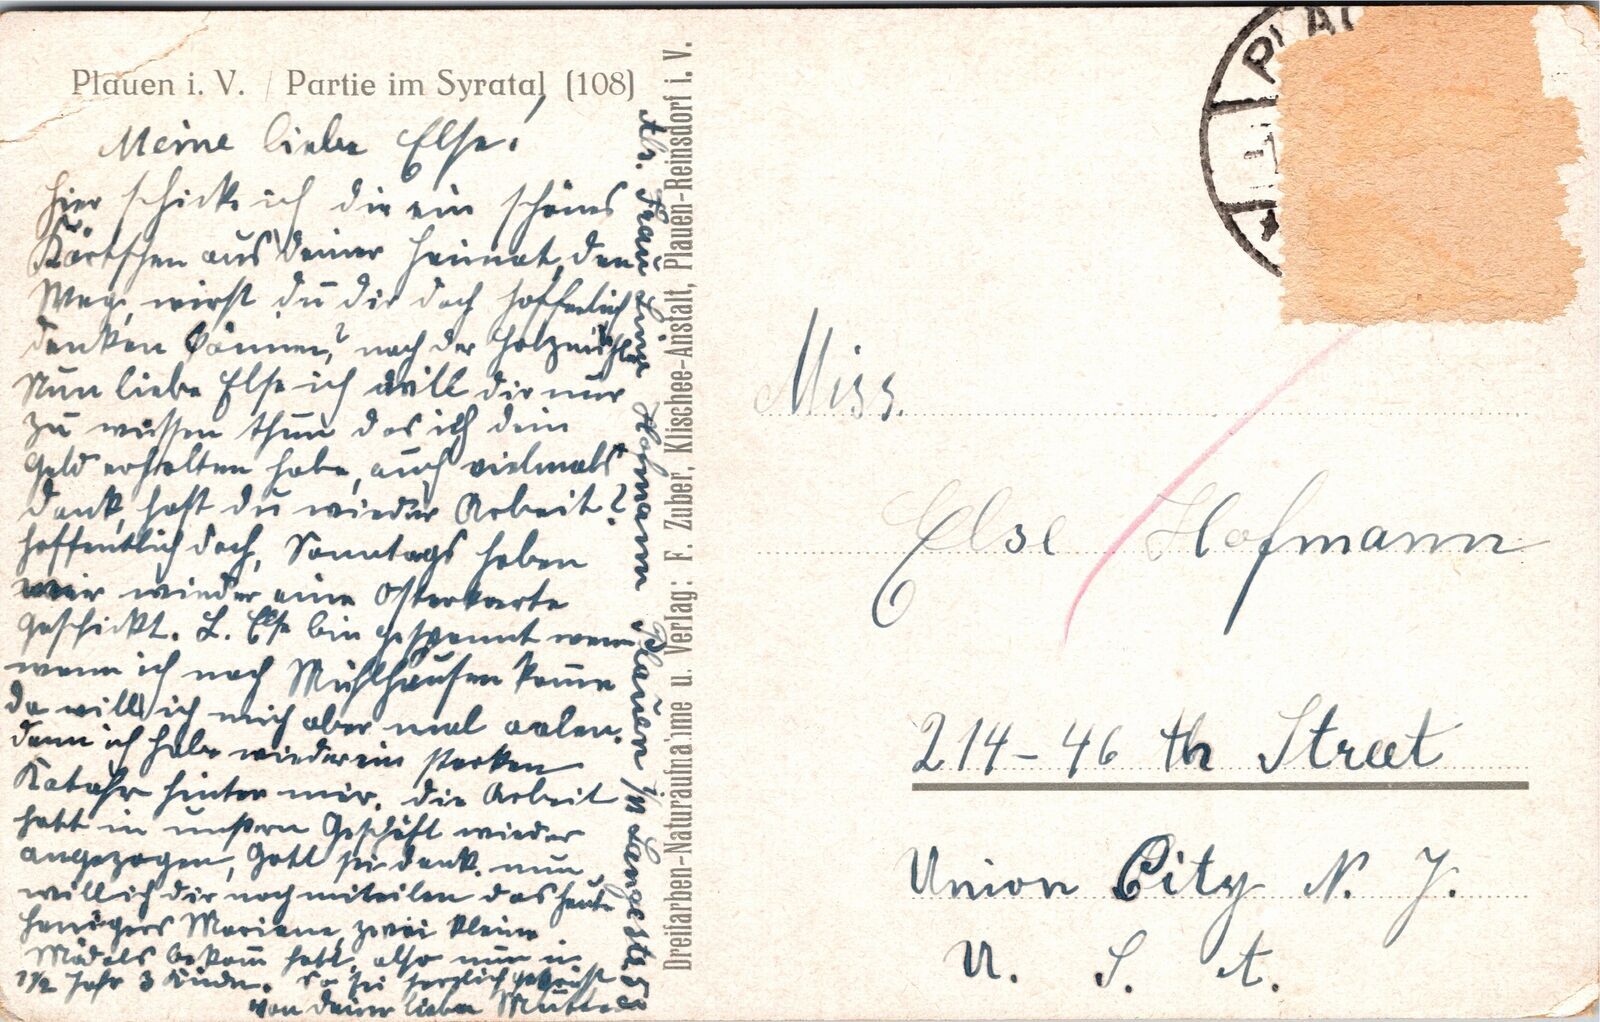 Plauen i. V. / Partie im Syratal (108)
Meine liebe Else!
hier schicke ich dir ein schönes
Kärtschen aus deiner Heimat, den
Weg, wirst du dir doch hoffentlich
denken können, nach der Holzmühle
Nun liebe Else ich will dir nur
zu wissen thun das ich dein
Geld erhalten habe, auch vielmals
dank, hast du wieder Arbeit?
hoffentlich doch, Sonntags haben
wir wieder eine Osterkarte
geschickt. L. Else bin gespannt wenn
wenn ich nach Mühlhausen komme
da will ich mich aber mal aalen.
denn ich habe wieder ein starken
Katahr hinter mir. die Arbeit
hatt in unsern Geschäft wieder
angezogen, Gott sei dank. nun
will ich dir noch mitteilen das heute
Mariane, zwei kleine
Mädels bekomm hatt, also nun in
1 1/2 Jahr 3 Kinder. So sei herzlich gegrüßt
von deiner lieben Mutter
Abs. Frau Line Hofmann Plauen i/V
Dreifarben-Naturaufnahme u. Verlag: F. Zuber, Klischee-Anstalt, Plauen-Reinsdorf i. V.
PLAU
Miss.
Else Hofmann
214-46 th Street
Union City N. J.
U. S. A.